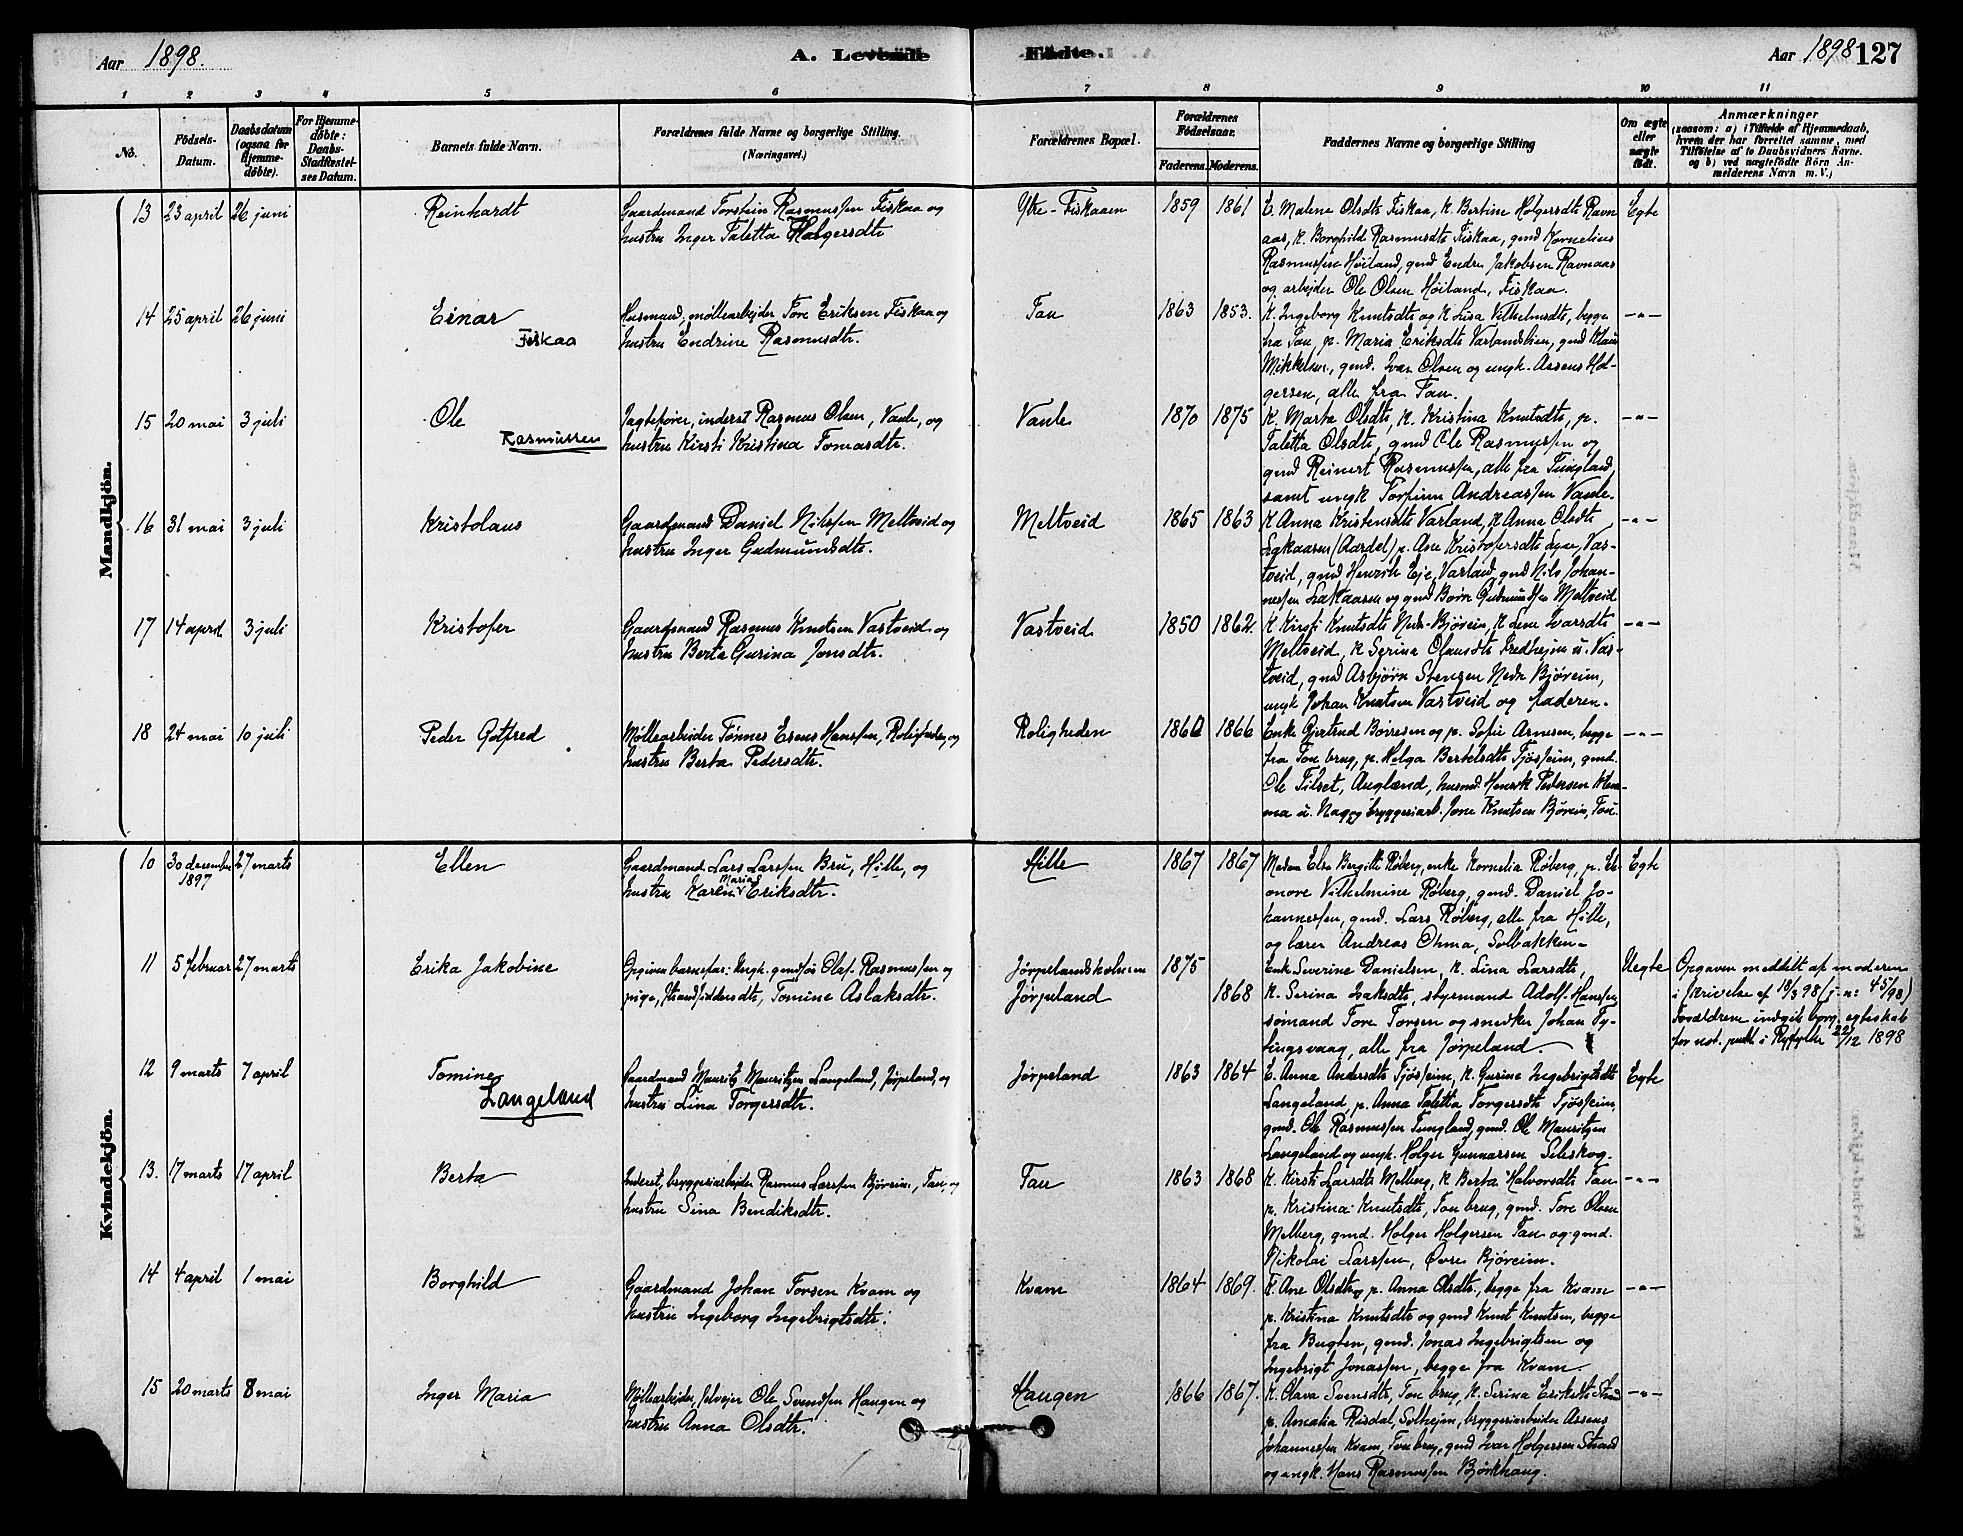 Aar 1898.
A. Levende
Födte.
Aar 1898 127
1 2 3 4 5 6 7 8 9 10 11
No.
Födsels-
Datum.
Daabsdatum
(ogsaa for
Hjemme-
döbte).
For Hjemme-
döbte:
Daabs-
Stadfæstel-
ses Datum.
Barnets fulde Navn.
Forældrenes fulde Navne og borgerlige Stilling.
(Næringsvei.)
Forældrenes Bopæl.
Forældrenes
Födselsaar.
Faderens. Moderens.
Faddernes Navne og borgerlige Stilling
Om ægte
eller
uægte
födt.
Anmærkninger
(saasom: a) i Tilfælde af Hjemmedaab,
hvem der har forrettet samme, med
Tilföielse af to Daabsvidners Navne.
og b) ved uægtefödte Börn An-
melderens Navn m. V.)
Mandkjön.
13 23 april 26 juni Reinhardt
Gaardmand Torstein Rasmussen Fiskaa og
hustru Inger Taletta Holgersdtr
Ytre-Fiskaaen 1859 1861
E. Malene Olsdtr Fiskaa, k. Bertine Holgersdtr Ravn
aas, k. Borghild Rasmusdtr Fiskaa, gmd Kornelius
Rasmussen Høiland, gmd Endre Jakobsen Ravnaas
og arbejder Ole Olsen Høiland, Fiskaa.
Egte
14 25 april 26 juni Einar
Fiskaa
Husmand, møllearbejder Tore Eriksen Fiskaa og
hustru Endrine Rasmusdtr.
Tau 1863 1853.
K. Ingeborg Knutsdtr og k Lisa Vilhelmsdtr, begge
fra Tau, p. Maria Eriksdtr Varlandslien, gmd Klaus
Mikkelsen, gmd. Ivar Olsen og ungk. Assens Hol-
gersen, alle fra Tau.
-"-
15 20 mai 3 juli Ole
Rasmussen
Jagtefører, inderst Rasmus Olsen, Vaule, og
hustru Kirsti Kristina Tomasdtr.
Vaule 1870 1875
K. Marta Olsdtr, k. Kristina Knutsdtr, p.
Taletta Olsdtr, gmd Ole Rasmussen og
gmd Reinert Rasmussen, alle fra Tungland,
samt ungk Torfinn Andreassen Vaule.
-"-
16 31 mai 3 juli Kristolaus
Gaardmand Daniel Nilssen Meltveid og
hustru Inger Gudmundsdtr.
Meltveid 1865 1863
K Anna Kristensdtr Varland, k Anna Olsdtr
(Aardal) p. Ane Kristofersdtr Lyse, Vas-
tveid, gmd Henrik Eje, Varland, gmd Nils Johan-
nessen og gmd Børn Gudmundsen Meltveid
-"-
17 14 april 3 juli Kristofer
Gaardmand Rasmus Knutsen Vastveid og
hustru Berta Gurina Jonsdtr.
Vastveid 1850 1862.
K Kirsti Knutsdtr Nedr Bjørein, k Lene Ivarsdtr
Meltveid, k Serina Olausdtr Fredheim u. Vas-
tveid, gmd Asbjørn Stensen Nedr Bjøreim,
ungk Johan Knutsen Vastveid og faderen.
-"-
18 24 mai 10 juli Peder Gotfred
Møllearbeider Tønnes Esens Hanssen, Roligheden, og
hustru Berta Pedersdtr.
Roligheden 1860 1866
Enke Gjertrud Børresen og p. Sofie Arnesen, begge
fra Tou brug, p. Helga Bertelsdtr Tjøsseim, gmd.
Ole Tilset, Augland, husmd. Henrik Pedersen Klem-
ma u. Nag og bryggeriarb. Jone Knutsen Bjørein, Tou.
-"-
Kvindekjön.
10 30 desember 1897 27 marts Ellen
Gaardmand Lars Larssen Bru, Hille, og
hustru Karen Maria Eriksdtr.
Hille 1867 1867
Madam Else Bergitte Røberg, enke Kornelia Røberg, p. El-
enore Vilhelmine Røberg, gmd. Daniel Jo-
hannessen, gmd. Lars Røberg, alle fra Hille,
og lærer Andreas Ohma, Solbakken-
Egte
11 5 februar 27 marts Erika Jakobine
Opgiven barnefar: Ungk. gmdsøn Olaf Rasmussen og
pige, Strandsiddersdtr, Tomine Aslaksdtr.
Jørpelandsholmen
Jørpeland 1875
1868
Enke Severine Danielsen, k. Lina Larsdtr,
k. Serina Isaksdtr, styrmand Adolf Hanssen,
sømand Tore Torsen og snedker Johan Ty-
tingsvaag, alle fra Jørpeland.
Uegte
Opgaven meddelt af moderen
i skrivelse af 18/3 98 (j. n: 45/98)
Forældrene indgik borg. egteskab
for not. publ. i Ryfylke 22/12 1898
12 9 marts 7 april Tomine
Langeland
Gaardmand Mauritz Mauritzen Langeland, Jørpeland, og
hustru Lina Torgersdtr.
Jørpeland 1863 1864
E. Anna Andersdtr Tjøsseim, k. Gurine Ingebrigtsdtr
Langeland, p. Anna Taletta Torgersdtr Tjøsseim,
gmd. Ole Rasmussen Tungland, gmd. Ole Mauritzen
Langeland og ungk. Holger Gunnarsen Seleskog.
Egte
13. 17 marts 17 april Berta
Inderst, bryggeriarbeider Rasmus Larssen Bjøreim, Tau, og
hustru Sina Bendiksdtr.
Tau 1863 1868
K. Kirsti Larsdtr Melberg, k Berta Halvorsdtr Tau
p. Kristina Knutsdtr, Tou brug, gmd. Tore Olsen
Melberg, gmd. Holger Holgersen Tau og gmd.
Nikolai Larssen, Øvre Bjøreim.
-"-
14 4 april 1 mai Borghild
Gaardmand Johan Torsen Kvam og
hustru Ingeborg Ingebrigtsdtr.
Kvam 1864 1869.
K. Ane Olsdtr og p. Anna Olsdtr., begge fra Kvam
p. Kristina Knutsdtr og gmd Knut Knutsen, begge
fra Bugten, gmd. Jonas Ingebrigtsen og
Ingebrigt Jonassen, begge fra Kvam.
-"-
15 20 marts 8 mai Inger Maria
Møllearbeider, selveier Ole Svendsen Haugen og
hustru Anna Olsdtr.
Haugen 1866 1867.
K. Olava Svensdtr, Tou brug, k. Serina Eriksdtr Strand
p. Amalia Risdal, Solheim, bryggeriarbeider Assens
Johannessen Kvam, Tou brug, gmd Ivar Holgersen Strand
og ungk. Hans Rasmussen Bjørkhaug.
-"-